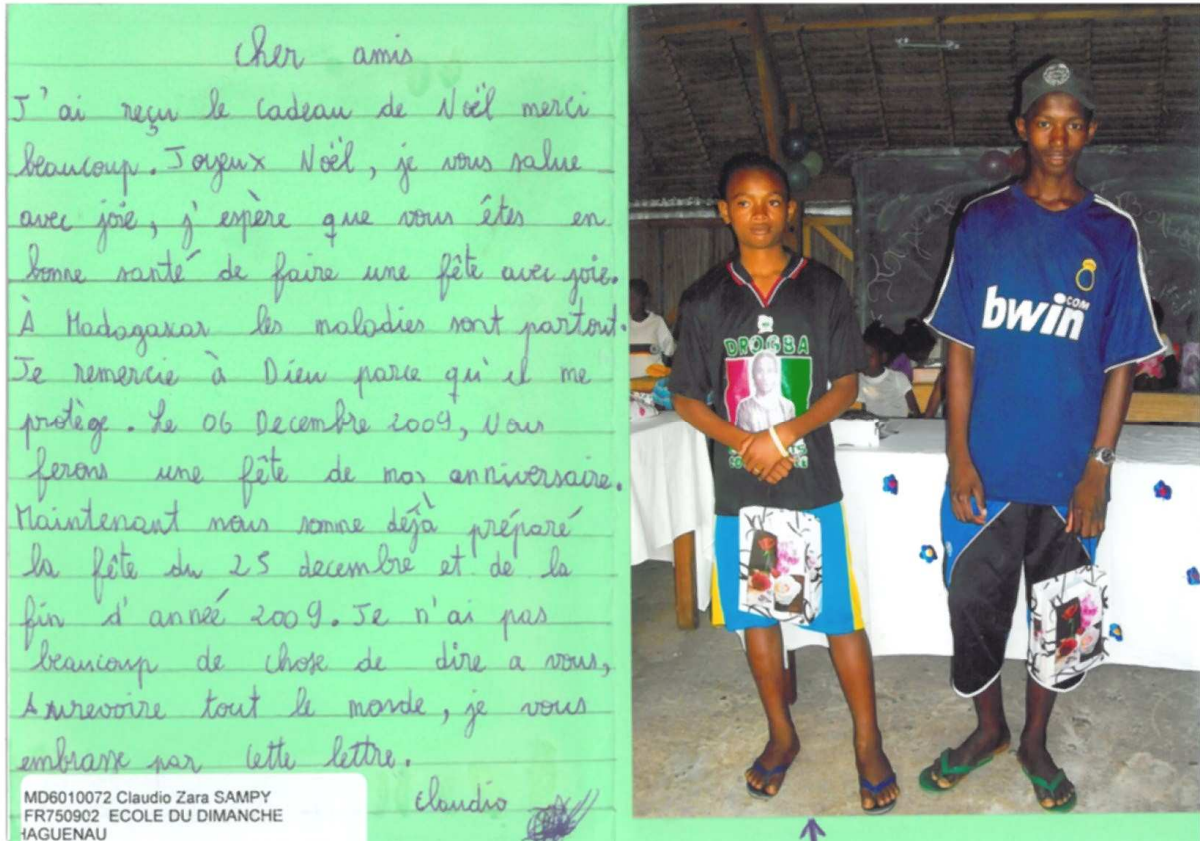 Cher amis
J'ai reçu le cadeau de Noël merci
beaucoup. Joyeux Noël, je vous salue
avec joie, j'espère que vous êtes en
bonne santé de faire une fête avec joie.
À Madagaskar les maladies sont partout.
Je remercie à Dieu parce qu'il me
protège. Le 06 Decembre 2009, Nous
ferons une fête de mos anniversaire.
Maintenant nous somme déjà préparé
la fête du 25 decembre et de la
fin d'anneé 2009. Je n'ai pas
beaucoup de chose de dire a vous,
Aurevoire tout le monde, je vous
embrasse par cette lettre.
Claudio
MD6010072 Claudio Zara SAMPY
FR750902 ECOLE DU DIMANCHE
HAGUENAU
DROGBA
bwin
.COM